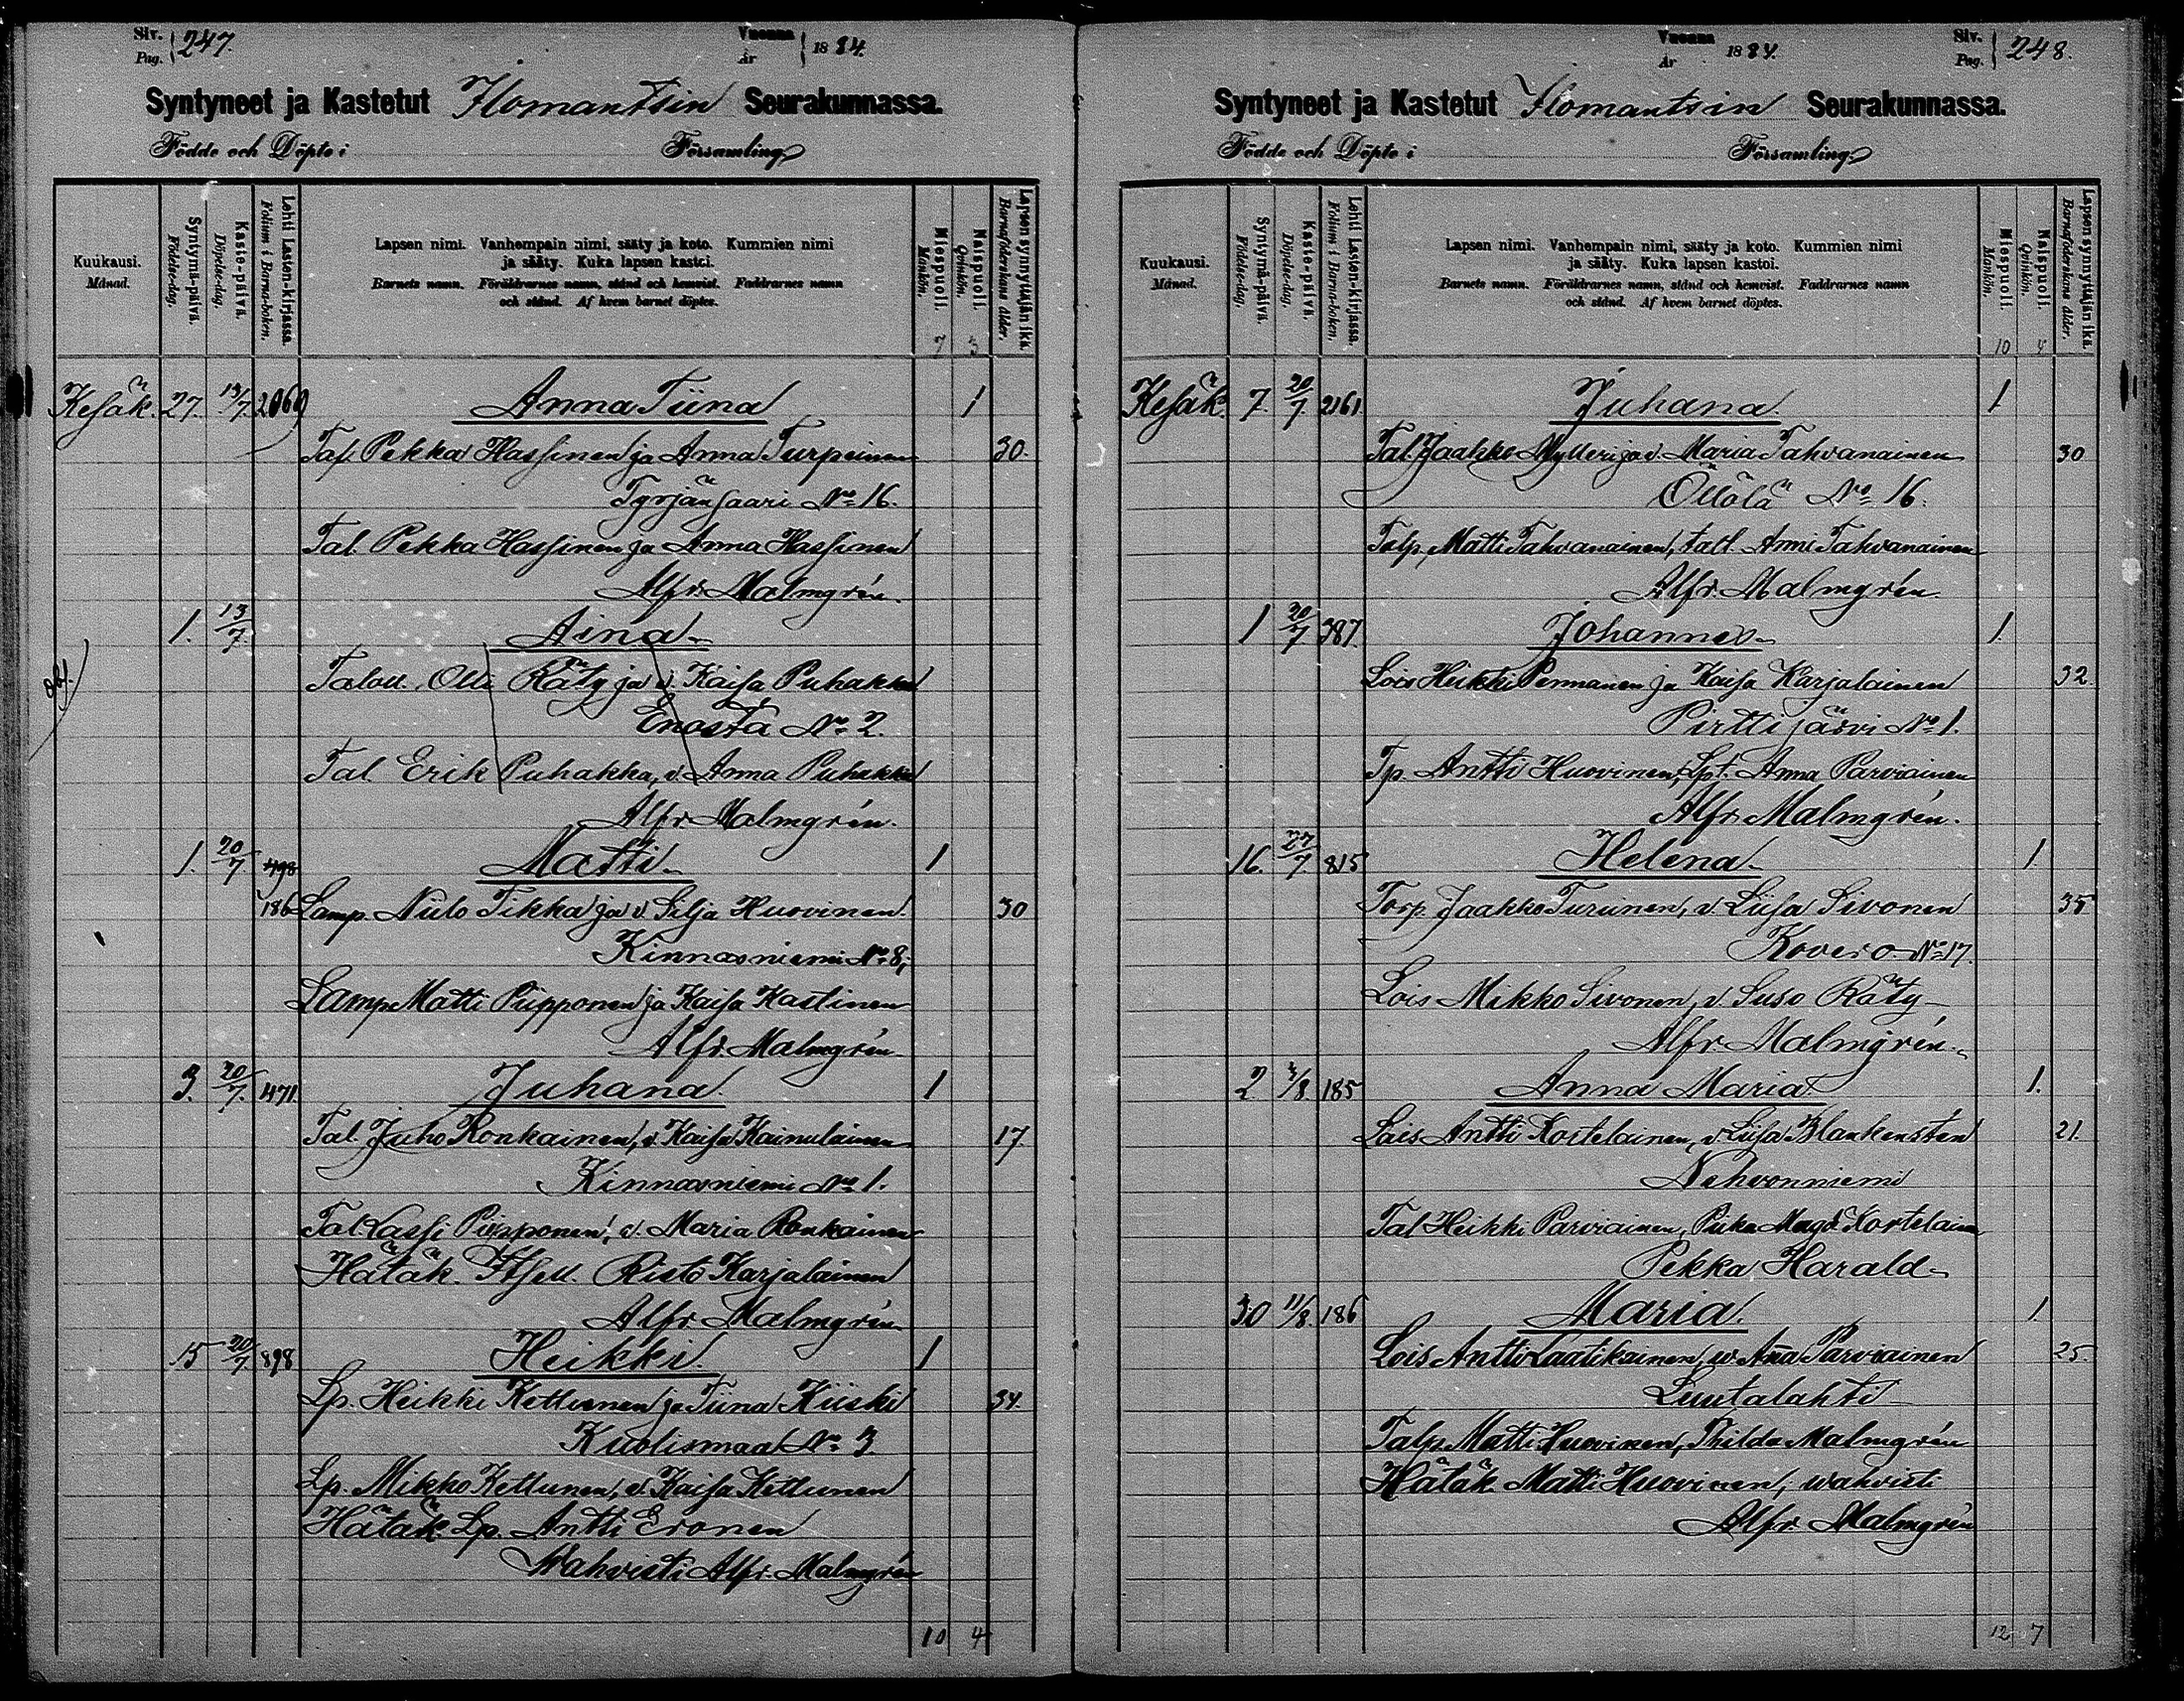 Siv. Pag. 247. Vuonna År 1884.
Syntyneet ja Kastetut Ilomantsin Seurakunnassa.
Födde och Döpte i Församling
Kuukausi. Månad.
Syntymä-päivä. Födelse-dag.
Kaste-päivä. Döpelse-dag.
Lehti Lasten-kirjassa. Folium i Barna-boken.
Lapsen nimi. Vanhempain nimi, sääty ja koto. Kummien nimi
ja sääty. Kuka lapsen kastoi.
Barnets namn. Föräldrarnes namn, stånd och hemvist. Faddrarnes namn
och stånd. Af hvem barnet döptes.
Miespuoli. Mankön.
Naispuoli. Qvinkön.
Lapsensynnyttäjän ikä. Barnaföderskans ålder.
7 3
Kesäk. 27. 13/7. 2069 Anna Tiina 1
Tal. Pekka Hassinen ja Anna Turpeinen 30.
Tyrjänsaari No 16.
Tal. Pekka Hassinen ja Anna Hassinen
Alfr. Malmgrén.
1. 13/7. Aina
Talou. Olli Räty ja v. Kaisa Puhakka
Enosta No 2.
Tal Erik Puhakka, v. Anna Puhakka
Alfr. Malmgrén.
1. 20/7. 498 Matti 1
186 Lamp. Niilo Tikka ja v. Silja Huovinen. 30
Kinnasniemi No 8,
Lamp Matti Piipponen ja Kaisa Kastinen
Alfr. Malmgrén
3. 20/7. 471. Juhana. 1
Tal. Juho Ronkainen, v. Kaisa Kainulainen 17.
Kinnasniemi No 1.
Tal. Lassi Piipponen, v. Maria Ronkainen
Hätäk. Itsell. Risto Karjalainen
Alfr. Malmgrén
15 20/7. 898 Heikki 1
Lp. Heikki Kettunen ja Tiina Kiiski 34.
Kuolismaa No 3
Lp. Mikko Kettunen, v. Kaisa Kettunen
Hätäk. Lp. Antti Eronen
Wahvisti Alfr. Malmgrén
10 4
Vuonna År 1884. Siv. Pag. 248.
Syntyneet ja Kastetut Ilomantsin Seurakunnassa.
Födde och Döpte i Församling
Kuukausi. Månad.
Syntymä-päivä. Födelse-dag.
Kaste-päivä. Döpelse-dag.
Lehti Lasten-kirjassa. Folium i Barna-boken.
Lapsen nimi. Vanhempain nimi, sääty ja koto. Kummien nimi
ja sääty. Kuka lapsen kastoi.
Barnets namn. Föräldrarnes namn, stånd och hemvist. Faddrarnes namn
och stånd. Af hvem barnet döptes.
Miespuoli. Mankön.
Naispuoli. Qvinkön.
Lapsensynnyttäjän ikä. Barnaföderskans ålder.
10 4
Kesäk. 7. 20/7. 2161. Juhana. 1
Tal. Jaakko Mylleri ja v. Maria Tahvanainen 30
Öllölä No 16.
Talp. Matti Tahvanainen, tatt. Anni Tahvanainen
Alfr. Malmgrén.
1 20/7 387. Johannes 1.
Lois Heikki Pennanen ja Kaisa Karjalainen 32.
Pirttijärvi No 1.
Tp. Antti Huovinen, Lpt. Anna Parviainen
Alfr. Malmgrén.
16. 27/7. 815 Helena. 1.
Torp. Jaakko Turunen, v. Liisa Sivonen 35
Kovero No 17.
Lois Mikko Sivonen, v. Suso Räty
Alfr. Malmgrén.
2 3/8 185 Anna Maria. 1.
Lois Antti Kortelainen, v. Liisa Blankenstén 21.
Nehvonniemi
Tal Heikki Parviainen, Piika Magd. Kortelain
Pekka Harald
30 11/8. 186 Maria. 1.
Lois Antti Laatikainen, w. Anna Parviainen 25.
Luutalahti
Talp. Matti Huovinen, Thilda Malmgrén
Hätäk. Matti Huovinen, wahvisti
Alfr. Malmgrén
12 7